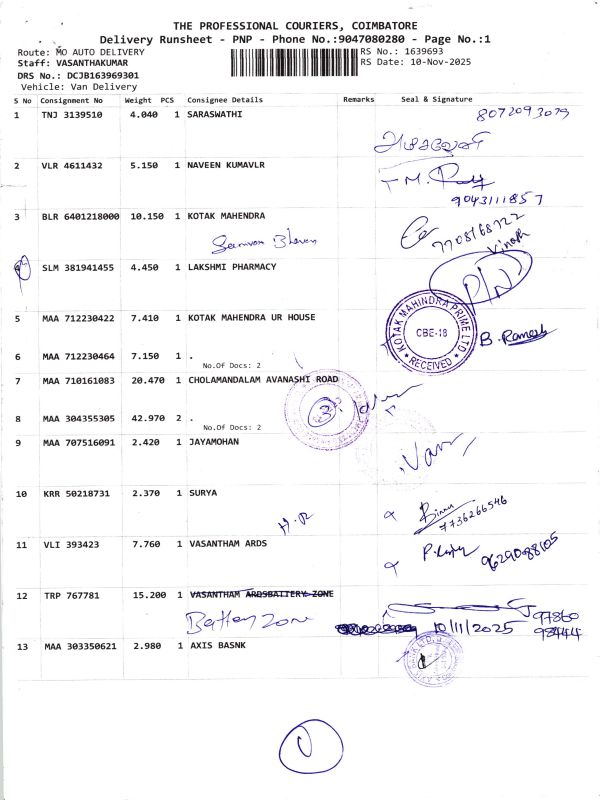 THE PROFESSIONAL COURIERS, COIMBATORE
Delivery Runsheet - PNP - Phone No.:9047080280 - Page No.:1
Route: MO AUTO DELIVERY
RS No.: 1639693
Staff: VASANTHAKUMAR
RS Date: 10-Nov-2025
DRS No.: DCJB163969301
Vehicle: Van Delivery
S No Consignment No Weight PCS Consignee Details Remarks Seal & Signature
1 TNJ 3139510 4.040 1 SARASWATHI 8072093079
2 VLR 4611432 5.150 1 NAVEEN KUMAVLR
9043111857
3 BLR 6401218000 10.150 1 KOTAK MAHENDRA
7708168722
Vinoth
4 SLM 381941455 4.450 1 LAKSHMI PHARMACY
5 MAA 712230422 7.410 1 KOTAK MAHENDRA UR HOUSE
KOTAK MAHINDRA PRIME LTD
CBE-18
RECEIVED
B. Ramesh
6 MAA 712230464 7.150 1 .
No.Of Docs: 2
7 MAA 710161083 20.470 1 CHOLAMANDALAM AVANASHI ROAD
3.
8 MAA 304355305 42.970 2 .
No.Of Docs: 2
9 MAA 707516091 2.420 1 JAYAMOHAN
10 KRR 50218731 2.370 1 SURYA
H.R
7736266546
11 VLI 393423 7.760 1 VASANTHAM ARDS
9629088105
12 TRP 767781 15.200 1 VASANTHAM ARDSBATTERY ZONE
Battery Zone
10/11/2025
97860
98444
13 MAA 303350621 2.980 1 AXIS BASNK